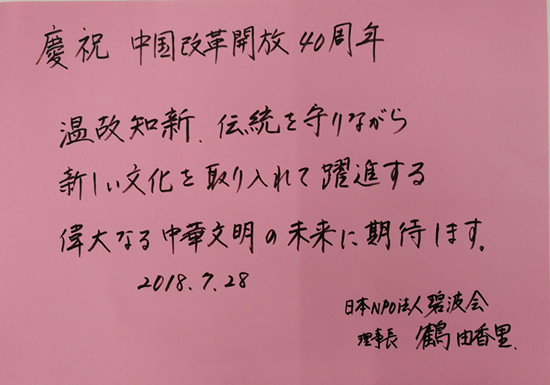 慶祝 中国改革開放40周年
温故知新、伝統を守りながら
新しい文化を取り入れて躍進する
偉大なる中華文明の未来に期待します。
2018.7.28
日本NPO法人碧波会
理事長 鶴由香里.